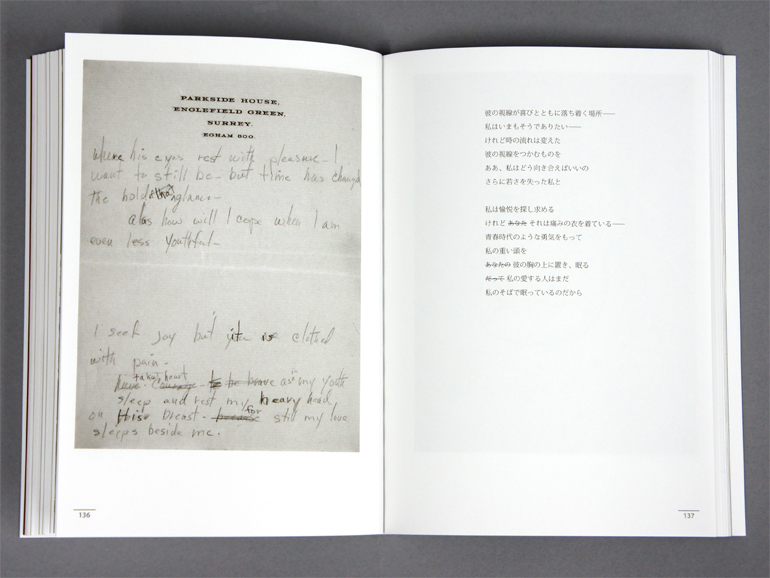 PARKSIDE HOUSE,
ENGLEFIELD GREEN,
SURREY.
EGHAM 800.
where his eyes rest with pleasure– I
want to still be– but time has changed
the hold glance–
alas how will I cope when I am
even less youthful–
I seek joy but it is clothed
with pain–
take heart
have courage to be brave as in my youth
sleep and rest my heavy head
on his breast– for still my love
sleeps beside me.
136
彼の視線が喜びとともに落ち着く場所――
私はいまもそうでありたい――
けれど時の流れは変えた
彼の視線をつかむものを
ああ、私はどう向き合えばいいの
さらに若さを失った私と
私は愉悦を探し求める
けれど あなた それは痛みの衣を着ている――
青春時代のような勇気をもって
私の重い頭を
あなたの 彼の胸の上に置き、眠る
だって 私の愛する人はまだ
私のそばで眠っているのだから
137